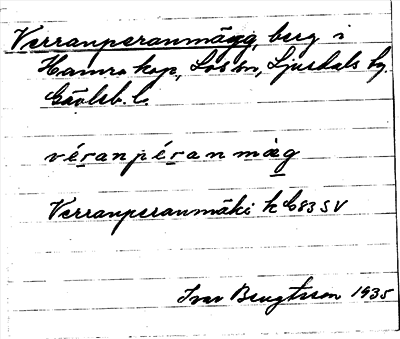 Verranperanmägg, berg i
Hamra kap, Los sn, Ljusdals tg.
Gävleb. l.
véranpéranmäg
Verranperanmäki k C83 SV
Ivar Bengtsson 1935